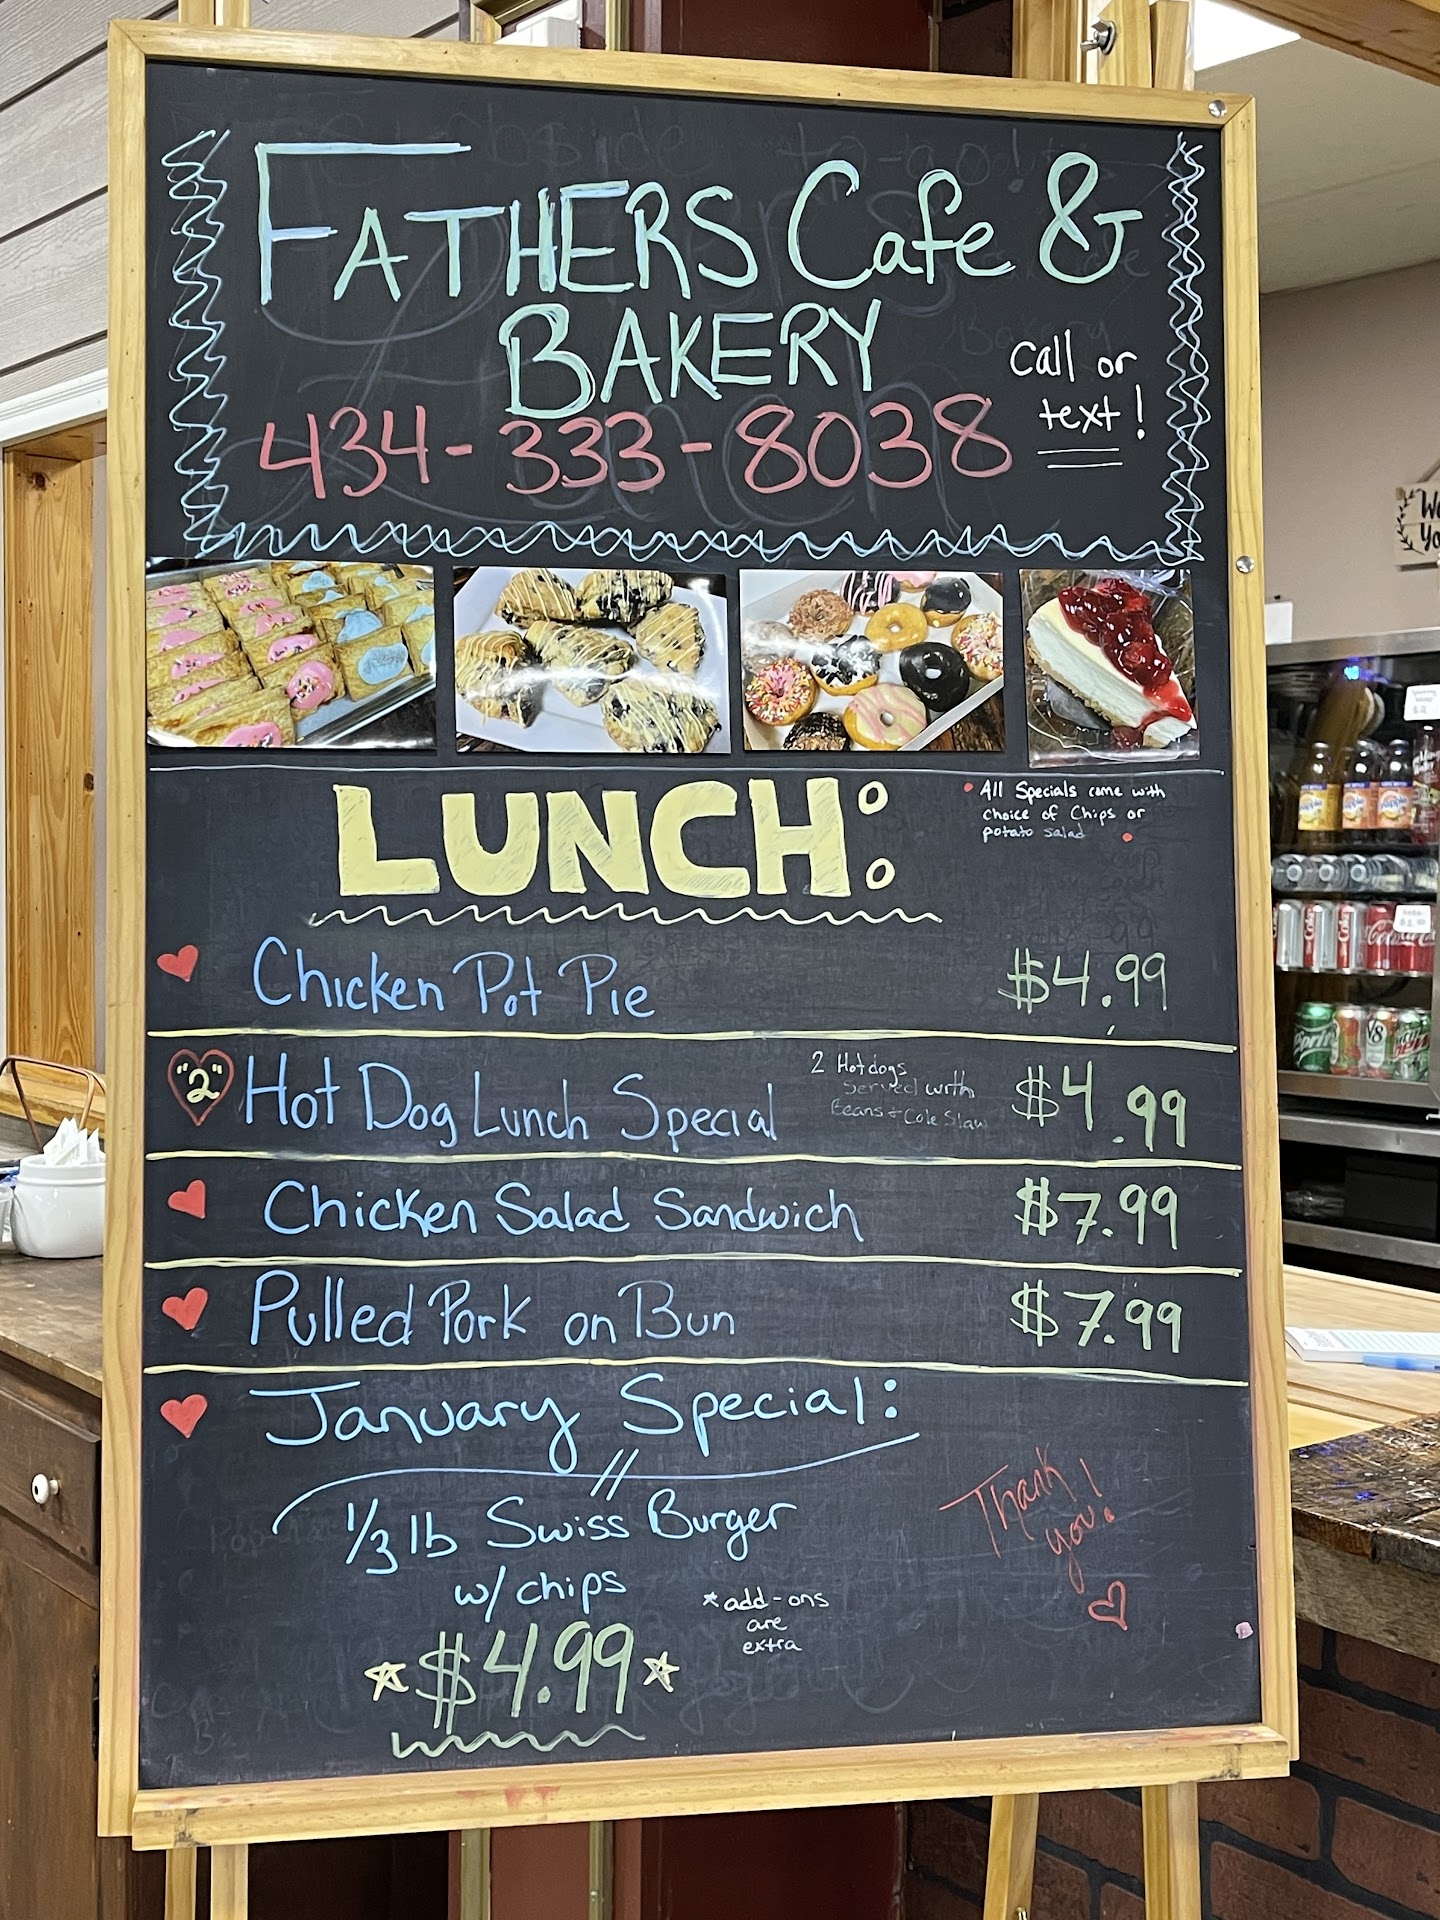 FATHERS Cafe &
BAKERY
Call or
text!
434-333-8038
LUNCH:
• All Specials come with
choice of Chips or
potato salad •
Chicken Pot Pie $4.99
"2" Hot Dog Lunch Special $4.99
2 Hotdogs
Served with
Beans + Cole Slaw
Chicken Salad Sandwich $7.99
Pulled Pork on Bun $7.99
January Special:
1/3 lb Swiss Burger
w/ chips
$4.99
*add-ons
are
extra
Thank
you!